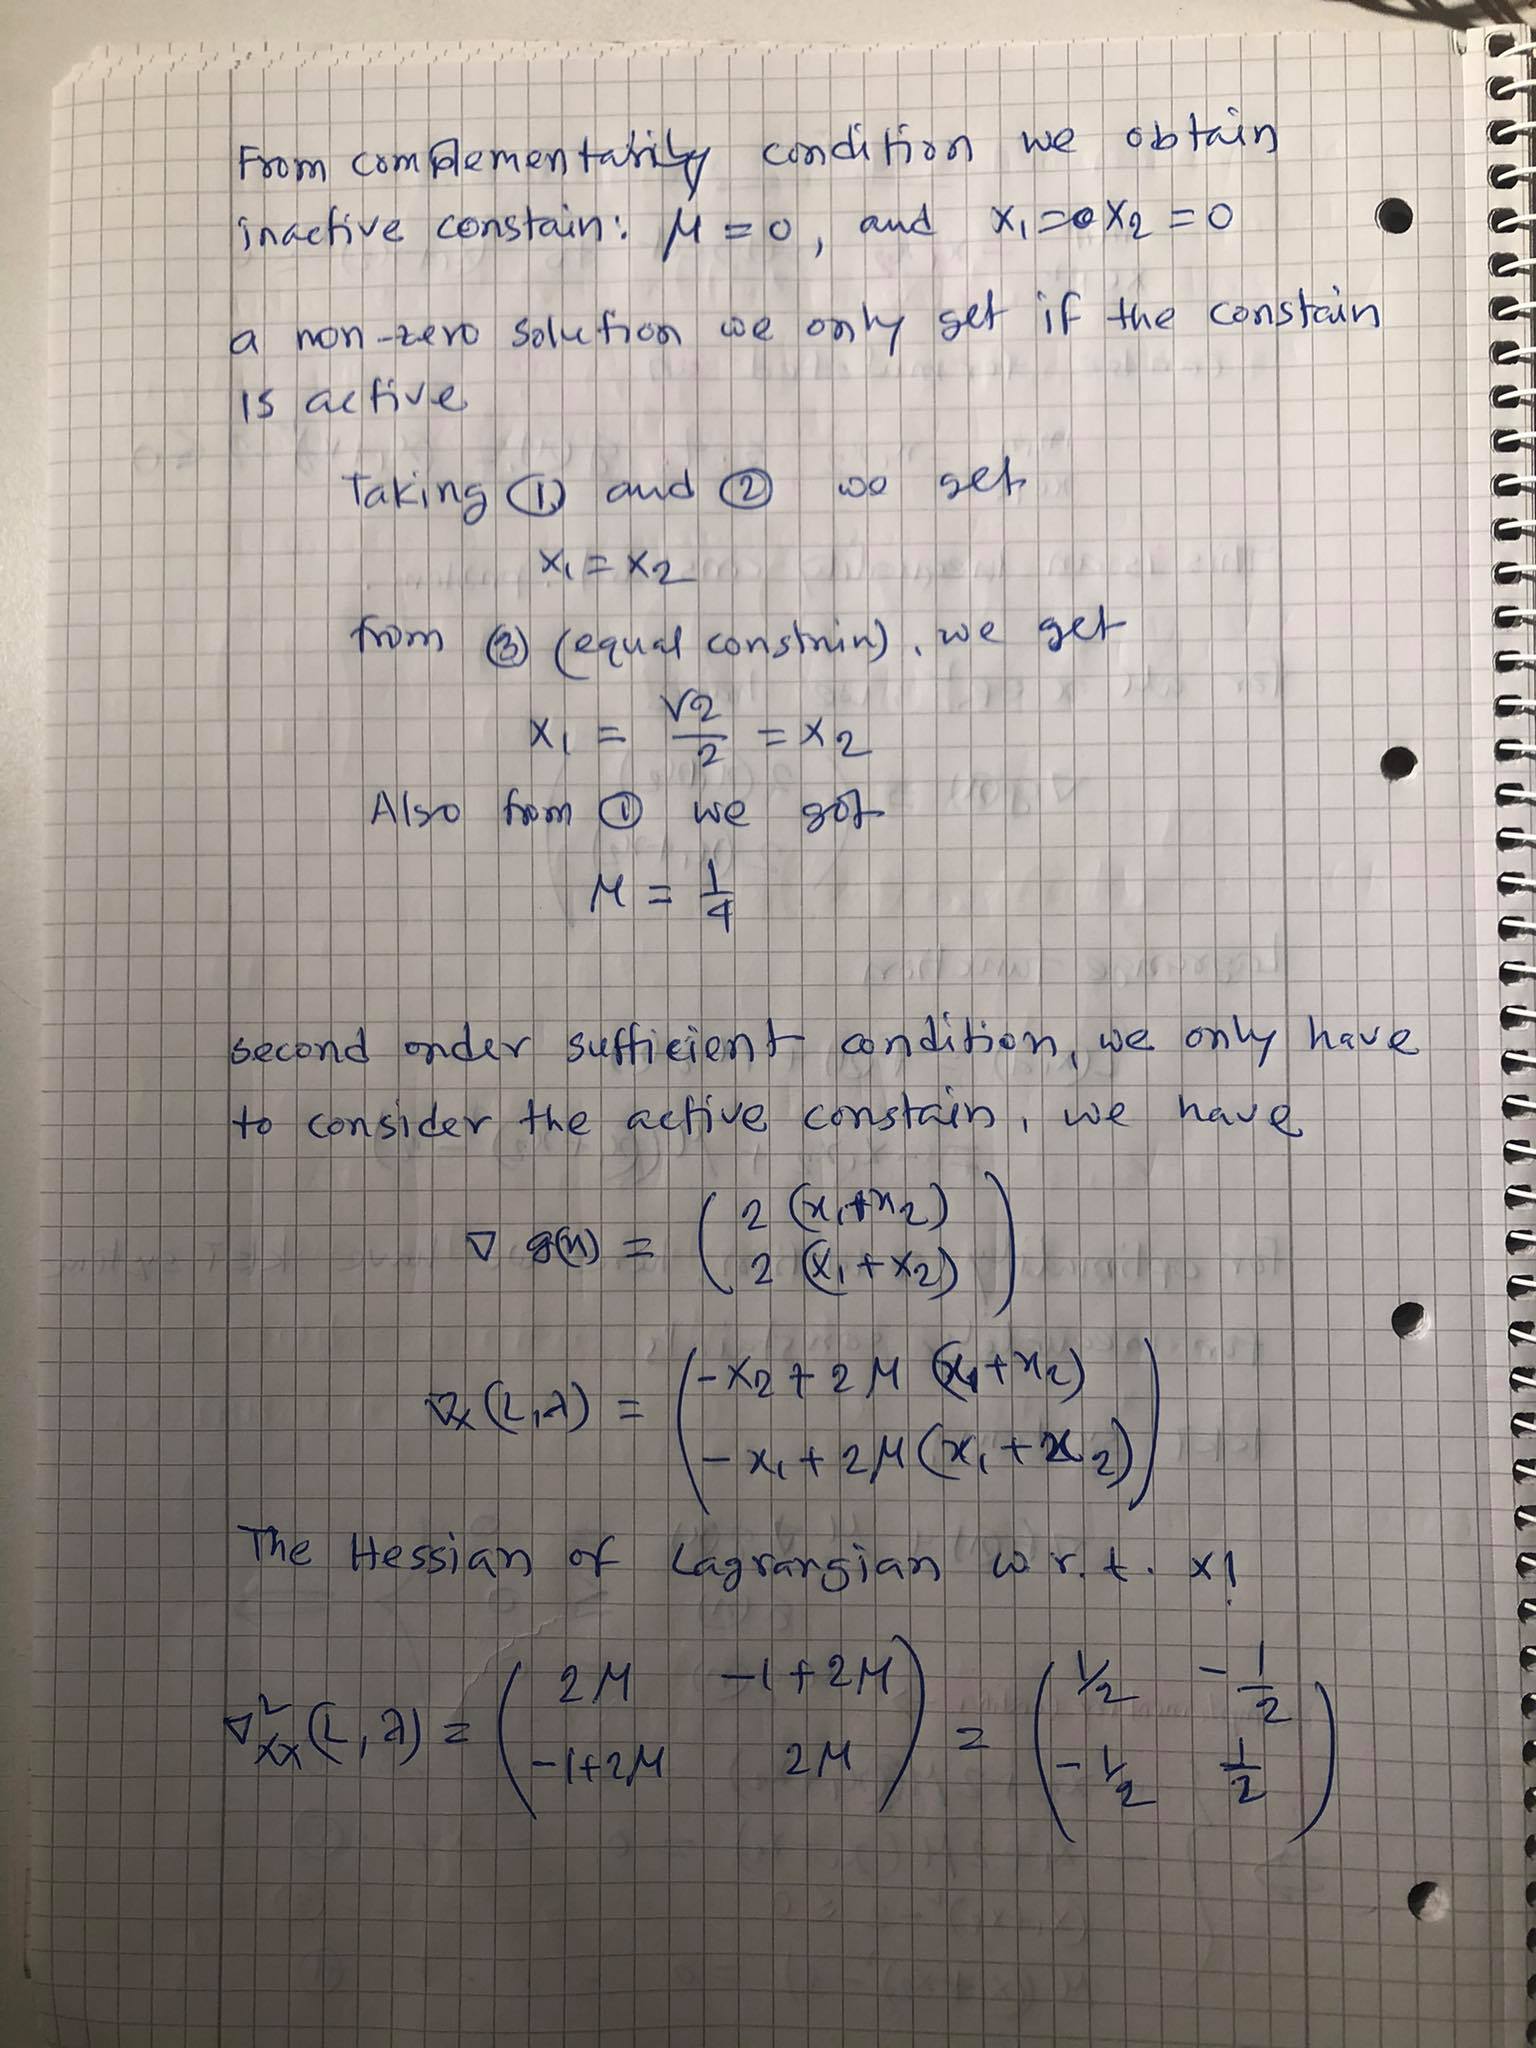 From complementarity condition we obtain
inactive constain: μ = 0, and x₁=0 x₂ = 0
a non-zero solution we only get if the constain
is active
Taking ① and ② we get
x₁ = x₂
from ③ (equal constrain), we get
x₁ = √2/2 = x₂
Also from ① we got
μ = 1/4
second order sufficient condition, we only have
to consider the active constain, we have
∇ g(x) = ( 2 (x₁+x₂)
2 (x₁+x₂) )
∇ₓ(L,λ) = ( -x₂ + 2μ (x₁+x₂)
-x₁ + 2μ (x₁+x₂) )
The Hessian of Lagrangian w.r.t. x!
∇²ₓₓ(L,λ) = ( 2μ -1+2μ
-1+2μ 2μ ) = ( 1/2 -1/2
-1/2 1/2 )